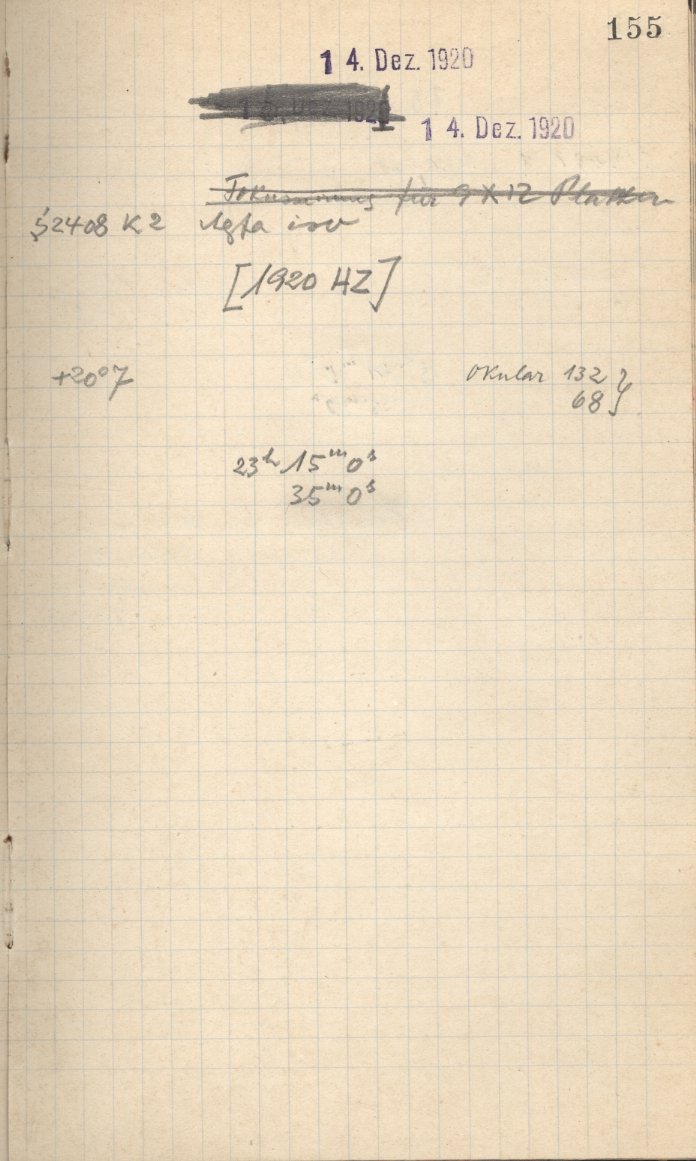 155
14. Dez. 1920
14. Dez. 1920
Fokussierung für 9 X 12 Platten
S2408 K2 Agfa iso
[1920 HZ]
+20°7 Okular 132 }
68 }
23h 15m 0s
35m 0s